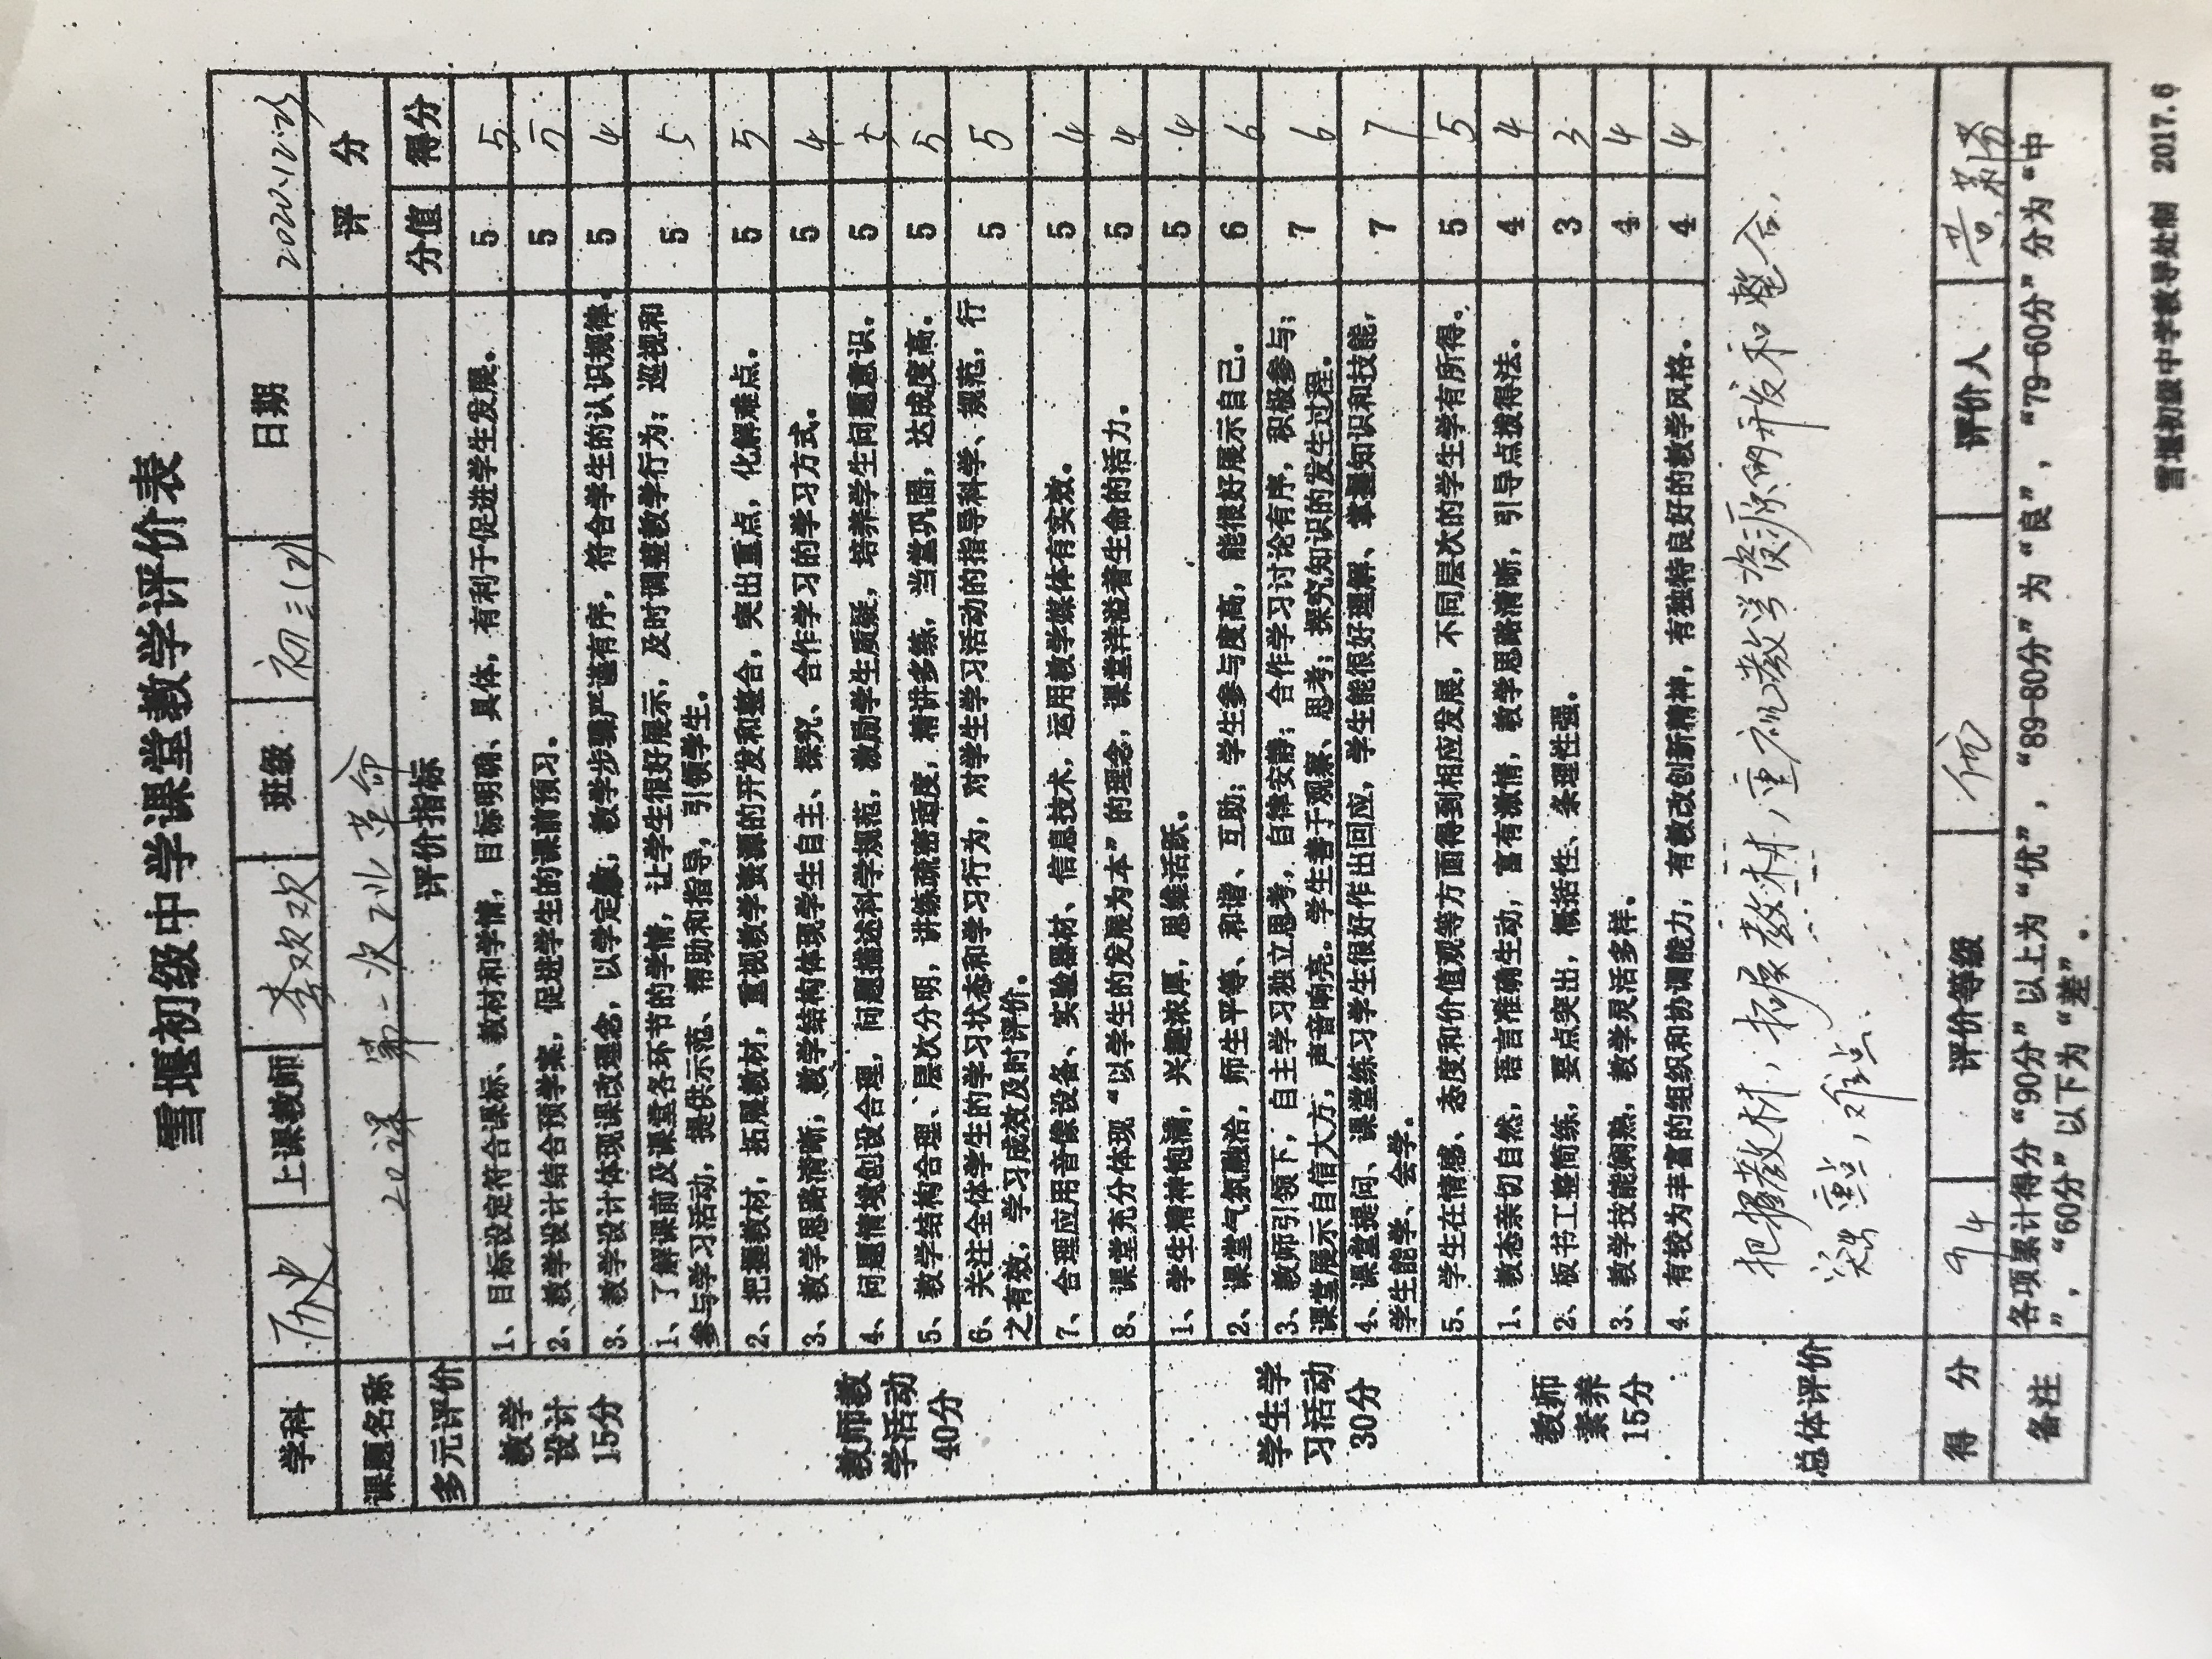 雪堰初级中学课堂教学评价表
学科 历史 上课教师 李欢欢 班级 初三(2) 日期 2020.12.25
课题名称 20课 第一次工业革命 评 分
多元评价 评价指标 分值 得分
教学设计 15分
1、目标设定符合课标、教材和学情,目标明确、具体,有利于促进学生发展。 5 5
2、教学设计结合预学案,促进学生的课前预习。 5 5
3、教学设计体现课改理念,以学定教;教学步骤严谨有序,符合学生的认识规律。 5 4
教师教学活动 40分
1、了解课前及课堂各环节的学情,让学生很好展示,及时调整教学行为;巡视和 5 5
参与学习活动,提供示范、帮助和指导,引领学生。
2、把握教材,拓展教材,重视教学资源的开发和整合,突出重点,化解难点。 5 5
3、教学思路清晰;教学结构体现学生自主、探究、合作学习的学习方式。 5 4
4、问题情境创设合理,问题描述科学规范,激励学生质疑,培养学生问题意识。 5
5、教学结构合理、层次分明,讲练疏密适度,精讲多练,当堂巩固,达成度高。 5 5
6、关注全体学生的学习状态和学习行为,对学生学习活动的指导科学、规范,行 5 5
之有效,学习成效及时评价。
7、合理应用音像设备、实验器材、信息技术,运用教学媒体有实效。 5 4
8、课堂充分体现“以学生的发展为本”的理念,课堂洋溢着生命的活力。 5 4
学生学习活动 30分
1、学生精神饱满,兴趣浓厚,思维活跃。 5 4
2、课堂气氛融洽,师生平等、和谐、互助;学生参与度高,能很好展示自己。 6 6
3、教师引领下,自主学习独立思考,自律安静;合作学习讨论有序,积极参与; 7 6
课堂展示自信大方,声音响亮。学生善于观察、思考;探究知识的发生过程。
4、课堂提问、课堂练习学生很好作出回应,学生能很好理解、掌握知识和技能, 7 7
学生能学、会学。
5、学生在情感、态度和价值观等方面得到相应发展,不同层次的学生学有所得。 5 5
教师素养 15分
1、教态亲切自然,语言准确生动,富有激情,教学思路清晰,引导点拨得法。 4 4
2、板书工整简练,要点突出,概括性、条理性强。 3 3
3、教学技能娴熟,教学灵活多样。 4 4
4、有较为丰富的组织和协调能力,有教改创新精神,有独特良好的教学风格。 4 4
总体评价 把握教材,拓展教材,重视教学资源的开发和整合,
突出重点,难点.
得 分 94 评价等级 优 评价人
备注 各项累计得分“90分”以上为“优”,“89-80分”为“良”,“79-60分”分为“中
”,“60分”以下为“差”。
雪堰初级中学教导处制 2017.6